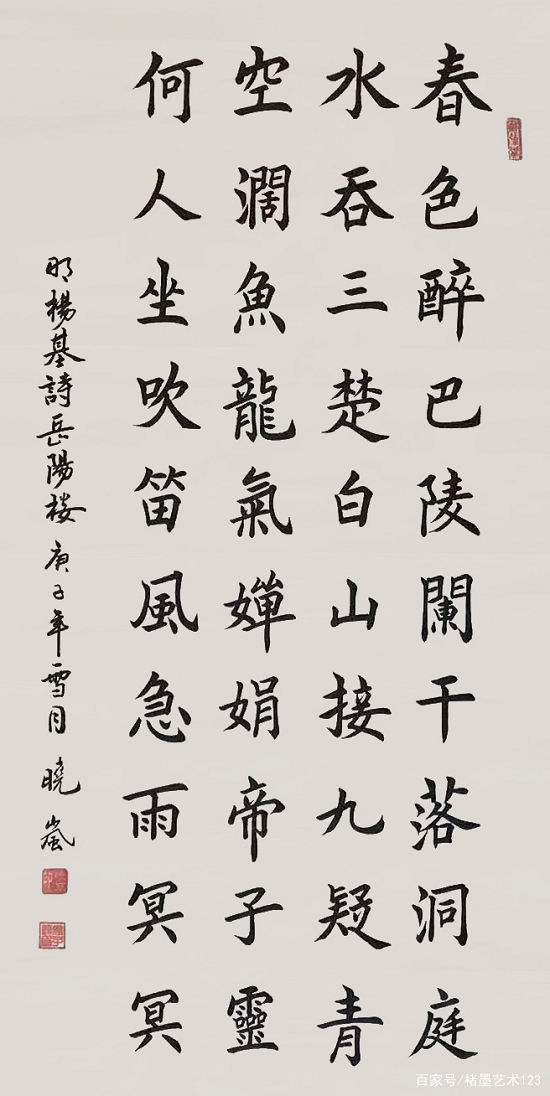 春色醉巴陵闌干落洞庭
水吞三楚白山接九疑青
空濶魚龍氣嬋娟帝子靈
何人坐吹笛風急雨冥冥
明楊基詩岳陽楼庚子年雪月曉嵐
百家号/楮墨艺术123